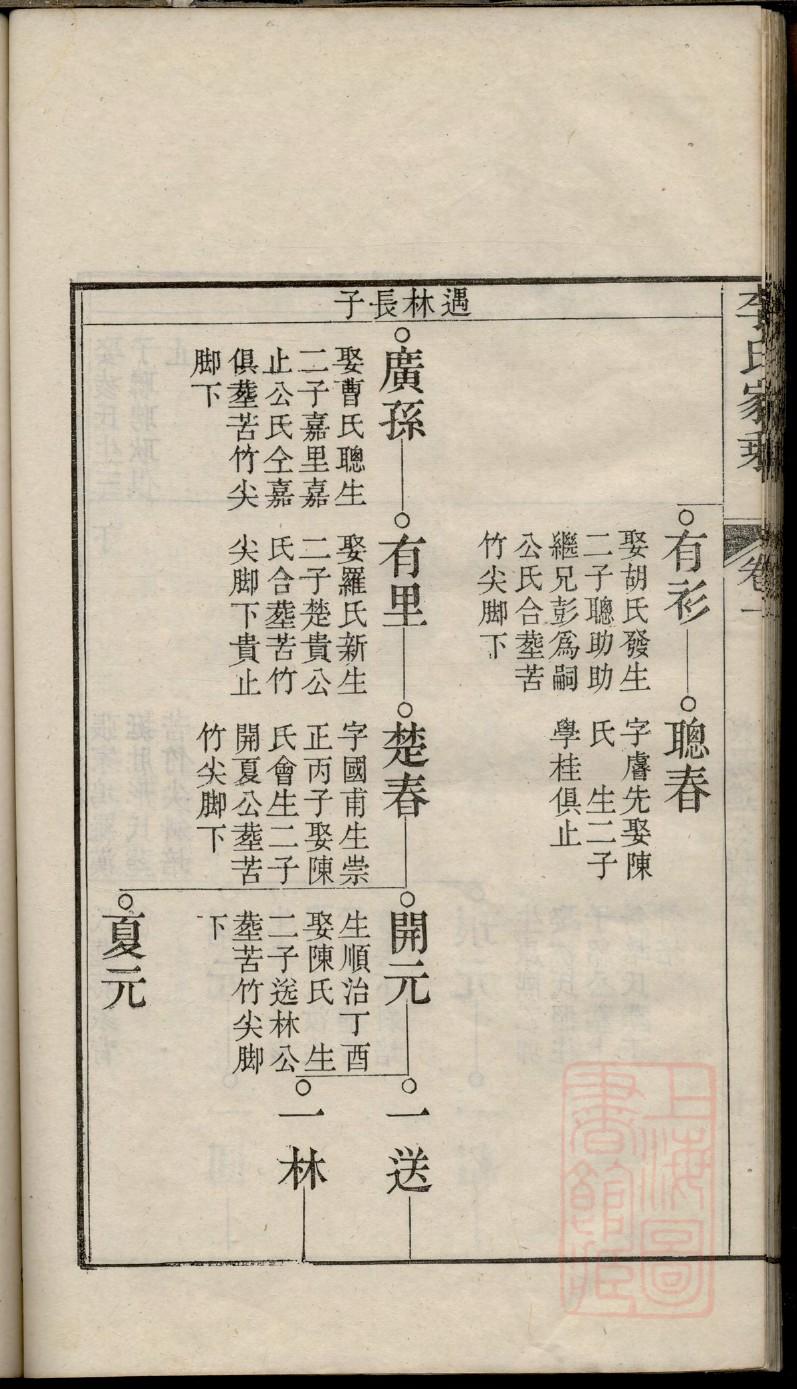 李氏家乘
卷一
有衫
娶胡氏發生
二子聰助助
繼兄彭爲嗣
公氏合塟苦
竹尖脚下
聰春
字睿先娶陳
氏 生二子
學桂俱止
遇林長子
廣孫
娶曹氏聰生
二子嘉里嘉
止公氏仝嘉
俱塟苦竹尖
脚下
有里
娶羅氏新生
二子楚貴公
氏合塟苦竹
尖脚下貴止
楚春
字國甫生崇
正丙子娶陳
氏會生二子
開夏公塟苦
竹尖脚下
開元
生順治丁酉
娶陳氏 生
二子送林公
塟苦竹尖脚
下
一送
一林
夏元
上海圖
書館藏